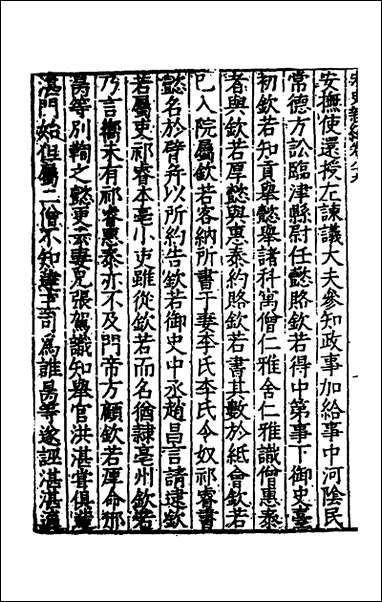 安撫使還授左諫議大夫參知政事加給事中河隂民
常德方訟臨津縣尉任懿賂欽若得中第事下御史臺
初欽若知貢舉懿舉諸科寓僧仁雅舍仁雅識僧惠秦
者與欽若厚懿與惠秦約賂欽若書其數於紙會欽若
已入院屬欽若客納所書于妻李氏李氏令奴祁睿書
懿名於臂并以所約告欽若御史中丞趙昌言請逮欽
若屬吏祁睿本亳小吏雖從欽若而名猶隷亳州欽若
乃言嚮未有祁睿惠秦亦不及門帝方顧欽若厚命邢
昺等別鞫之懿更云妻兄張駕識知舉官洪湛嘗俱造
湛門始但屬二僧不知達主司爲誰昺等遂誣湛湛適